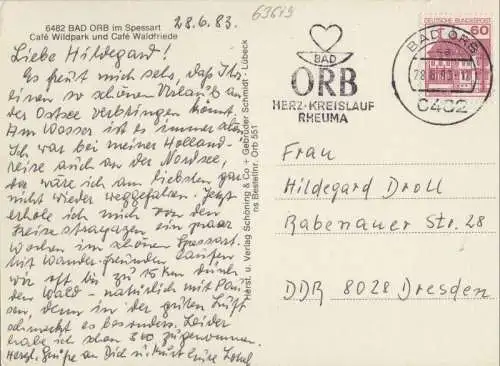 6482 BAD ORB im Spessart
Café Wildpark und Café Waldfriede
28.6.83.
63649
Liebe Hildegard!
Es freut mich sehr, daß Ihr
einen so schönen Urlaub an
der Ostsee verbringen könnt.
Am Wasser ist es immer schön.
Ich war bei meiner Holland-
reise auch an der Nordsee,
da wäre ich am liebsten gar
nicht wieder weggefahren. Jetzt
erhole ich mich von den
Reisestrapazen ein paar
Wochen im schönen Spessart.
Mit Wanderfreunden laufen
wir oft bis zu 15 km durch
den Wald - natürlich mit Pau-
sen, denn in der guten Luft
schmeckt es besonders. Leider
habe ich schon zugenommen.
Herzl. Grüße an Dich u. Kurt Eure
Herst. u. Verlag Schöning & Co + Gebrüder Schmidt · Lübeck
Bestellnr. Orb 551
BAD
ORB
HERZ-KREISLAUF
RHEUMA
BAD ORB
28.6.83-12
6482
DEUTSCHE BUNDESPOST
60
Frau
Hildegard Droll
Rabenauer Str. 28
DDR 8028 Dresden